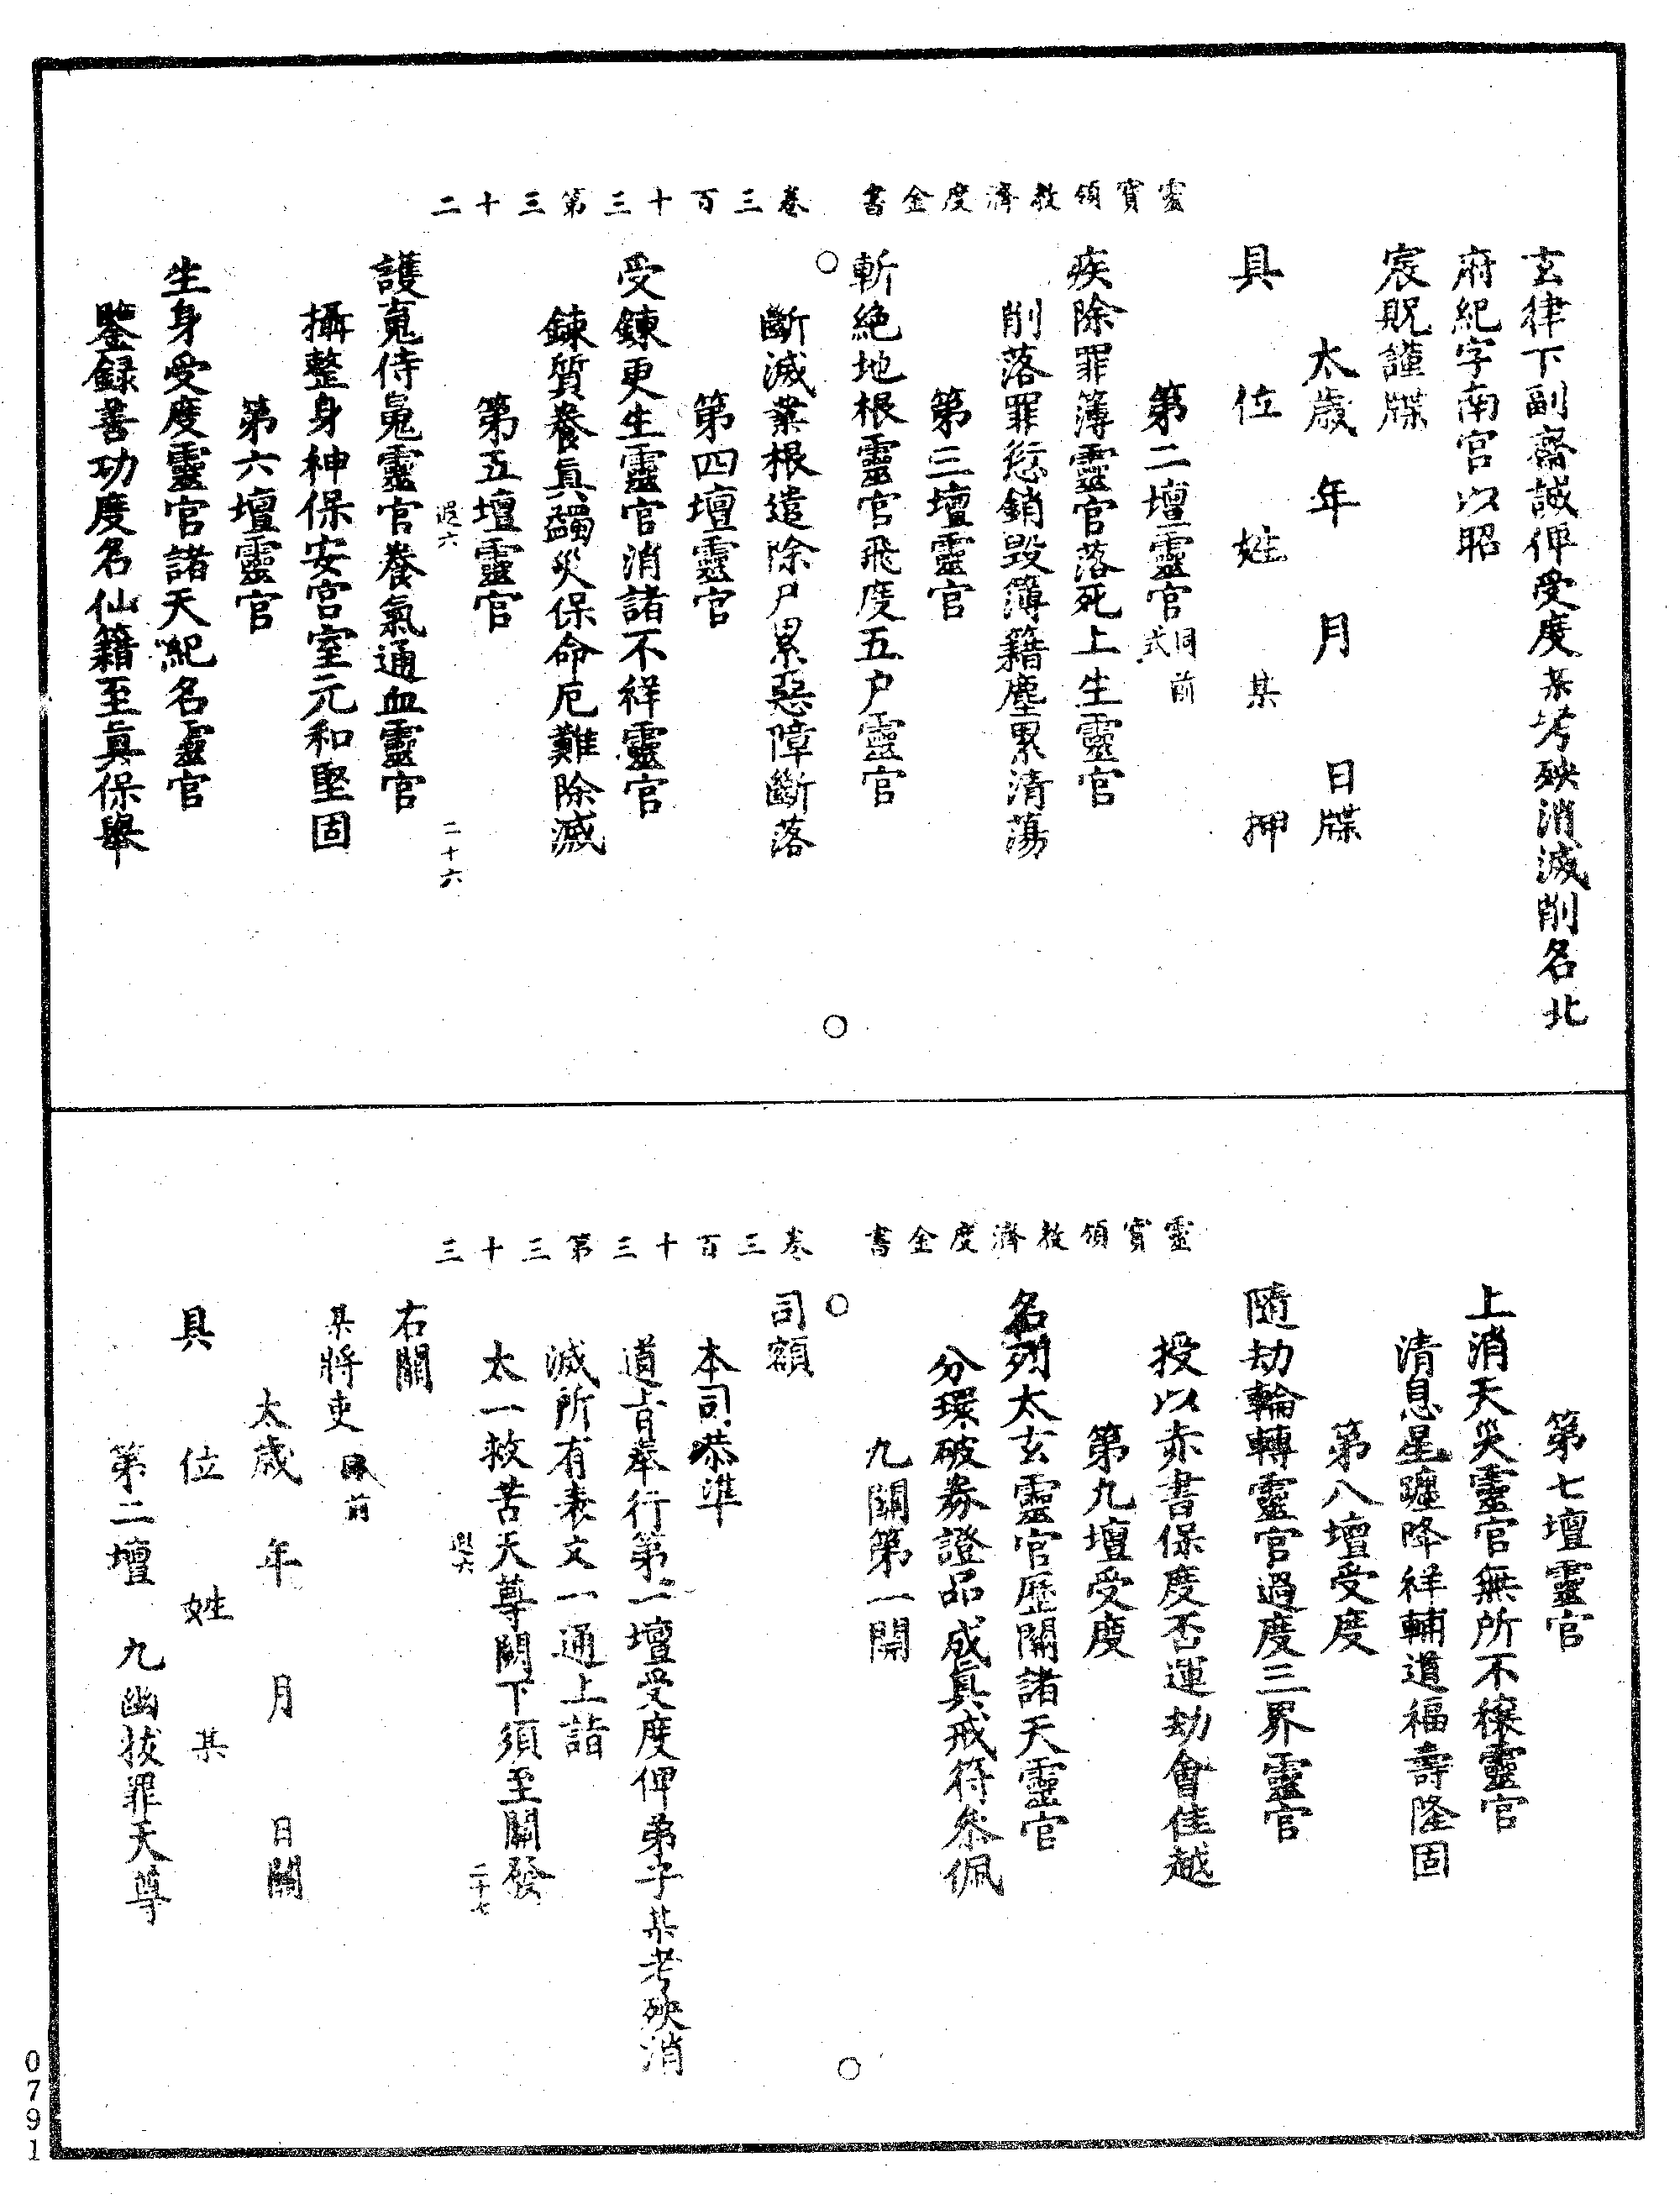 靈寶領教濟度金書　卷三百十三第三十二
玄律下副齋誠俾受度某考殃消滅削名北
府紀字南宮以昭
宸貺謹牒
太歲　年　月　日牒
具　位　姓　某　押
第二壇靈官同前式
疾除罪簿靈官落死上生靈官
削落罪愆銷毀簿籍塵累清蕩
第三壇靈官
斬絶地根靈官飛度五户靈官
斷滅業根遣除尸累惡障斷落
第四壇靈官
受鍊更生靈官消諸不祥靈官
鍊質養眞蠲災保命厄難除滅
第五壇靈官
退六　二十六
護䰟侍䰟靈官養氣通血靈官
攝整身神保安宮室元和堅固
第六壇靈官
生身受度靈官諸天紀名靈官
鑒録善功度名仙籍至眞保舉
靈寶領教濟度金書　卷三百十三第三十三
第七壇靈官
上消天災靈官無所不禳靈官
清息星躔降祥輔道福壽隆固
第八壇受度
隨劫輪轉靈官過度三界靈官
授以赤書保度否運劫會佳越
第九壇受度
名列太玄靈官歷關諸天靈官
分環破券證品成眞戒符叅佩
九關第一關
司額
本司恭準
道旨奉行第二壇受度俾弟子某考殃消
滅所有表文一通上詣
太一救苦天尊闕下須至關發
退六　二十七
右關
某將吏　前
太歲　年　月　日關
具　位　姓　某
第二壇　九幽拔罪天尊
0791